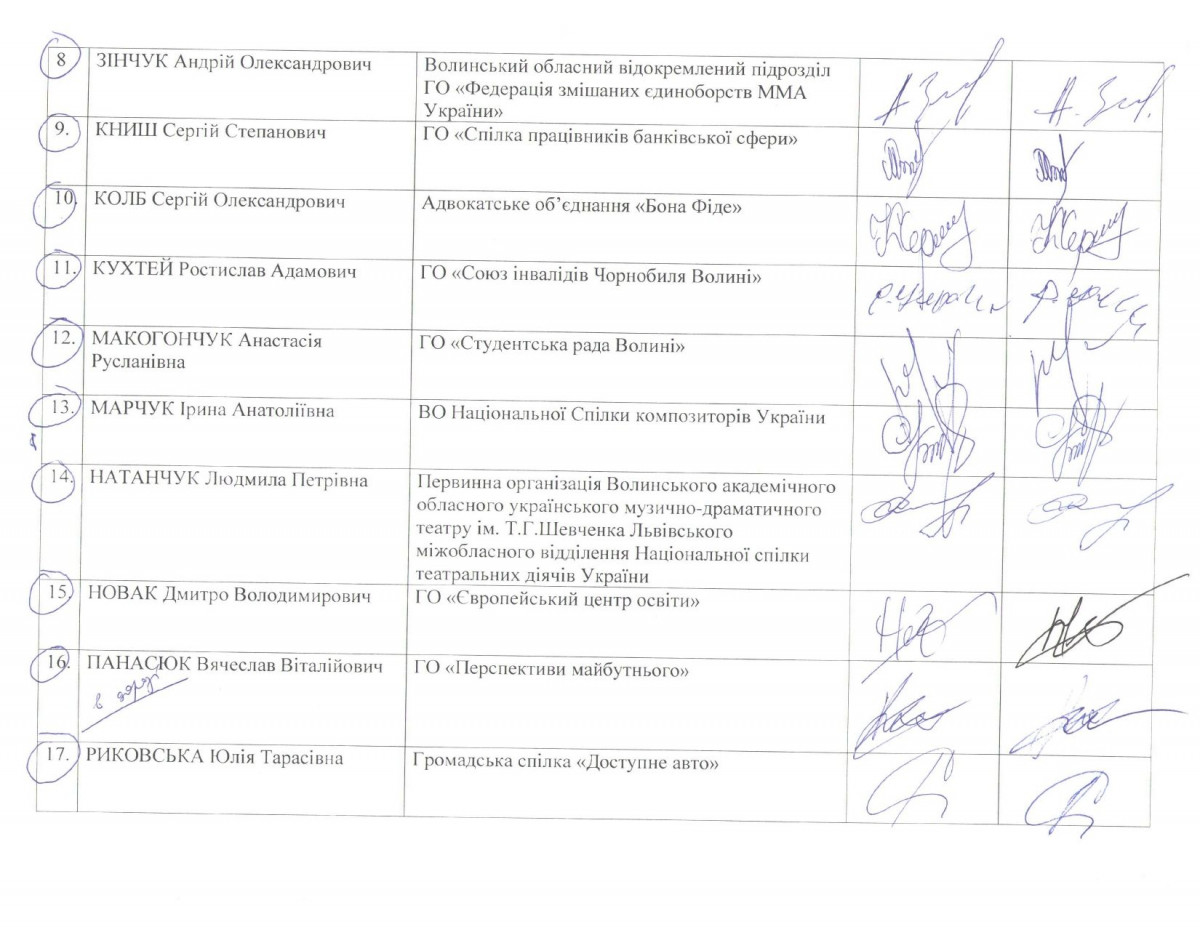 8 ЗІНЧУК Андрій Олександрович Волинський обласний відокремлений підрозділ
ГО «Федерація змішаних єдиноборств ММА
України»
9. КНИШ Сергій Степанович ГО «Спілка працівників банківської сфери»
10. КОЛБ Сергій Олександрович Адвокатське об’єднання «Бона Фіде»
11. КУХТЕЙ Ростислав Адамович ГО «Союз інвалідів Чорнобиля Волині»
12. МАКОГОНЧУК Анастасія ГО «Студентська рада Волині»
Русланівна
13. МАРЧУК Ірина Анатоліївна ВО Національної Спілки композиторів України
14. НАТАНЧУК Людмила Петрівна Первинна організація Волинського академічного
обласного українського музично-драматичного
театру ім. Т.Г.Шевченка Львівського
міжобласного відділення Національної спілки
театральних діячів України
15. НОВАК Дмитро Володимирович ГО «Європейський центр освіти»
16. ПАНАСЮК Вячеслав Віталійович ГО «Перспективи майбутнього»
17. РИКОВСЬКА Юлія Тарасівна Громадська спілка «Доступне авто»